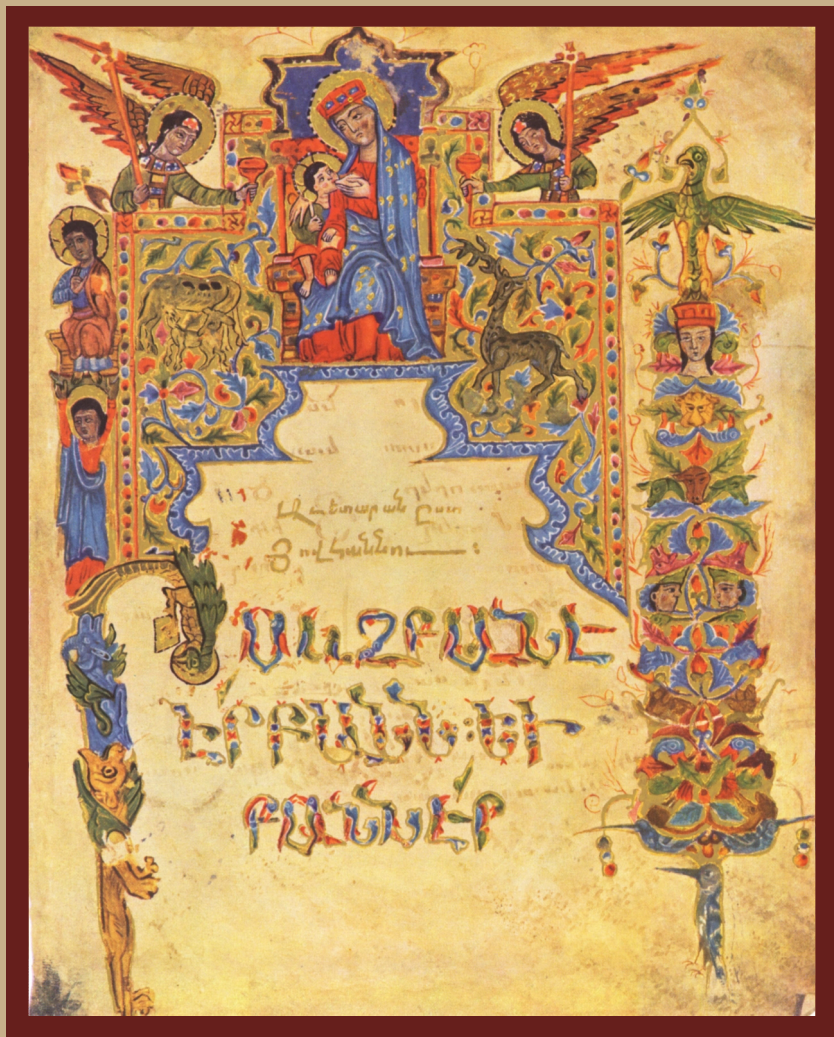 Աւետարան ըստ
Յովհաննու :
ԻՍԿԶԲԱՆԷ
ԷՐ ԲԱՆՆ : ԵՒ
ԲԱՆՆ ԷՐ